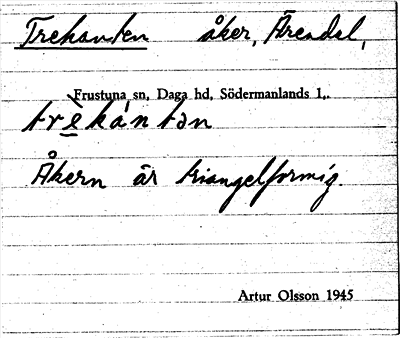 Trekanten åker, Ärendal,
Frustuna sn, Daga hd, Södermanlands l,.
trè̱kántən
Åkern är triangelformig.
Artur Olsson 1945